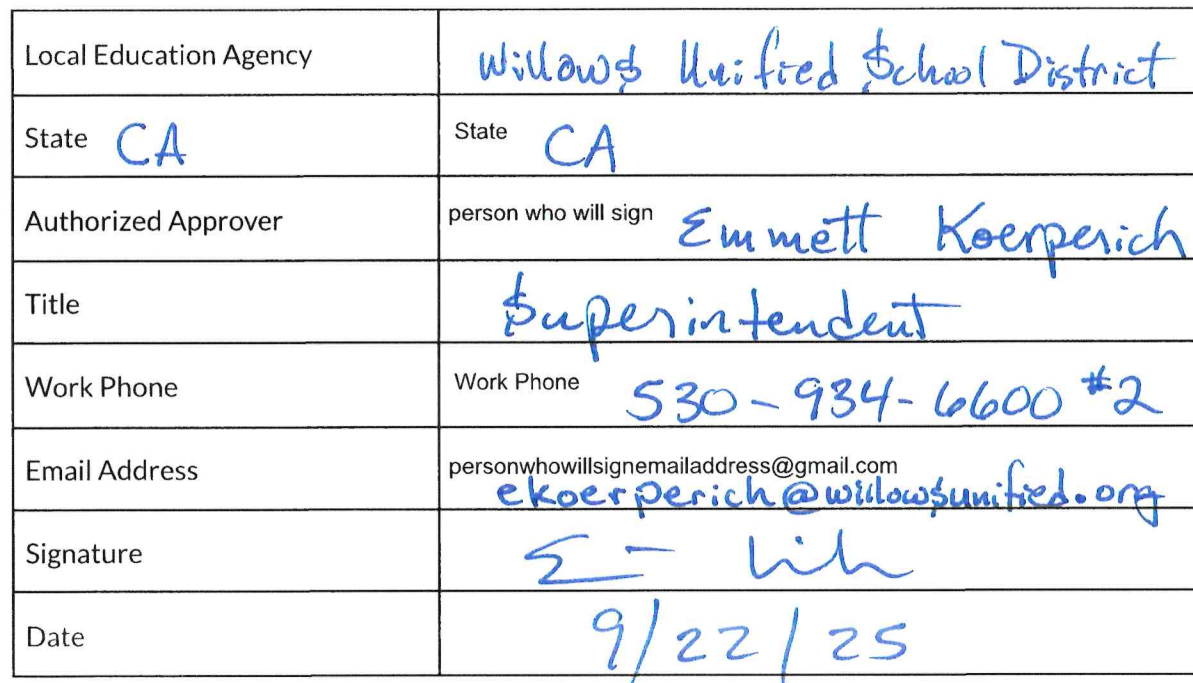 Local Education Agency Willows Unified School District
State CA State CA
Authorized Approver person who will sign Emmett Koerperich
Title Superintendent
Work Phone Work Phone 530-934-6600 #2
Email Address personwhowillsignemailaddress@gmail.com
ekoerperich@willowsunified.org
Signature
Date 9/22/25